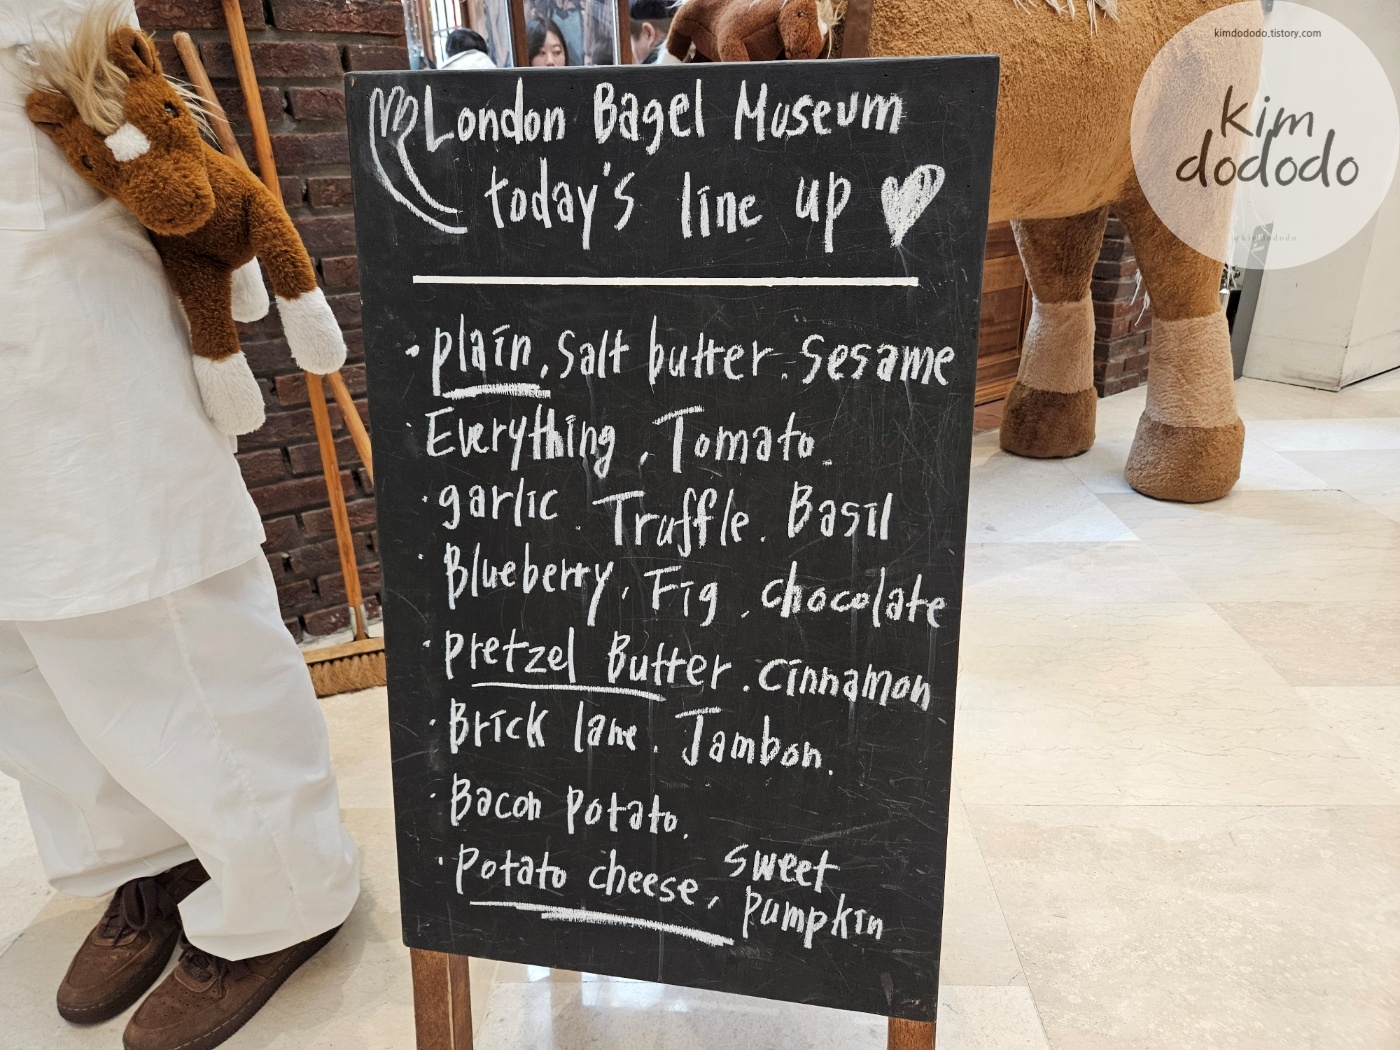 London Bagel Museum
today's line up
· plain, Salt butter. Sesame
· Everything, Tomato.
· garlic. Truffle. Basil
· Blueberry, Fig, chocolate
· pretzel Butter. Cinnamon
· Brick lane. Jambon.
· Bacon potato.
· potato cheese, sweet
pumpkin
kimdododo.tistory.com
kim
dododo